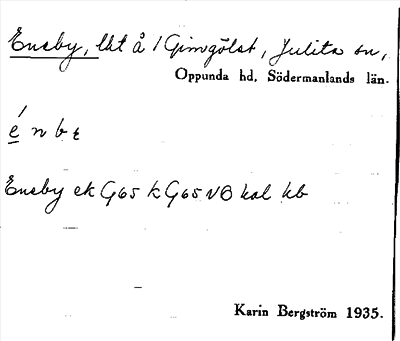 Eneby, lht å 1 Gimgölst, Julita sn,
Oppunda hd, Södermanlands län.
é n b ε
Eneby ek G65 k G65 NB kal kb
Karin Bergström 1935.